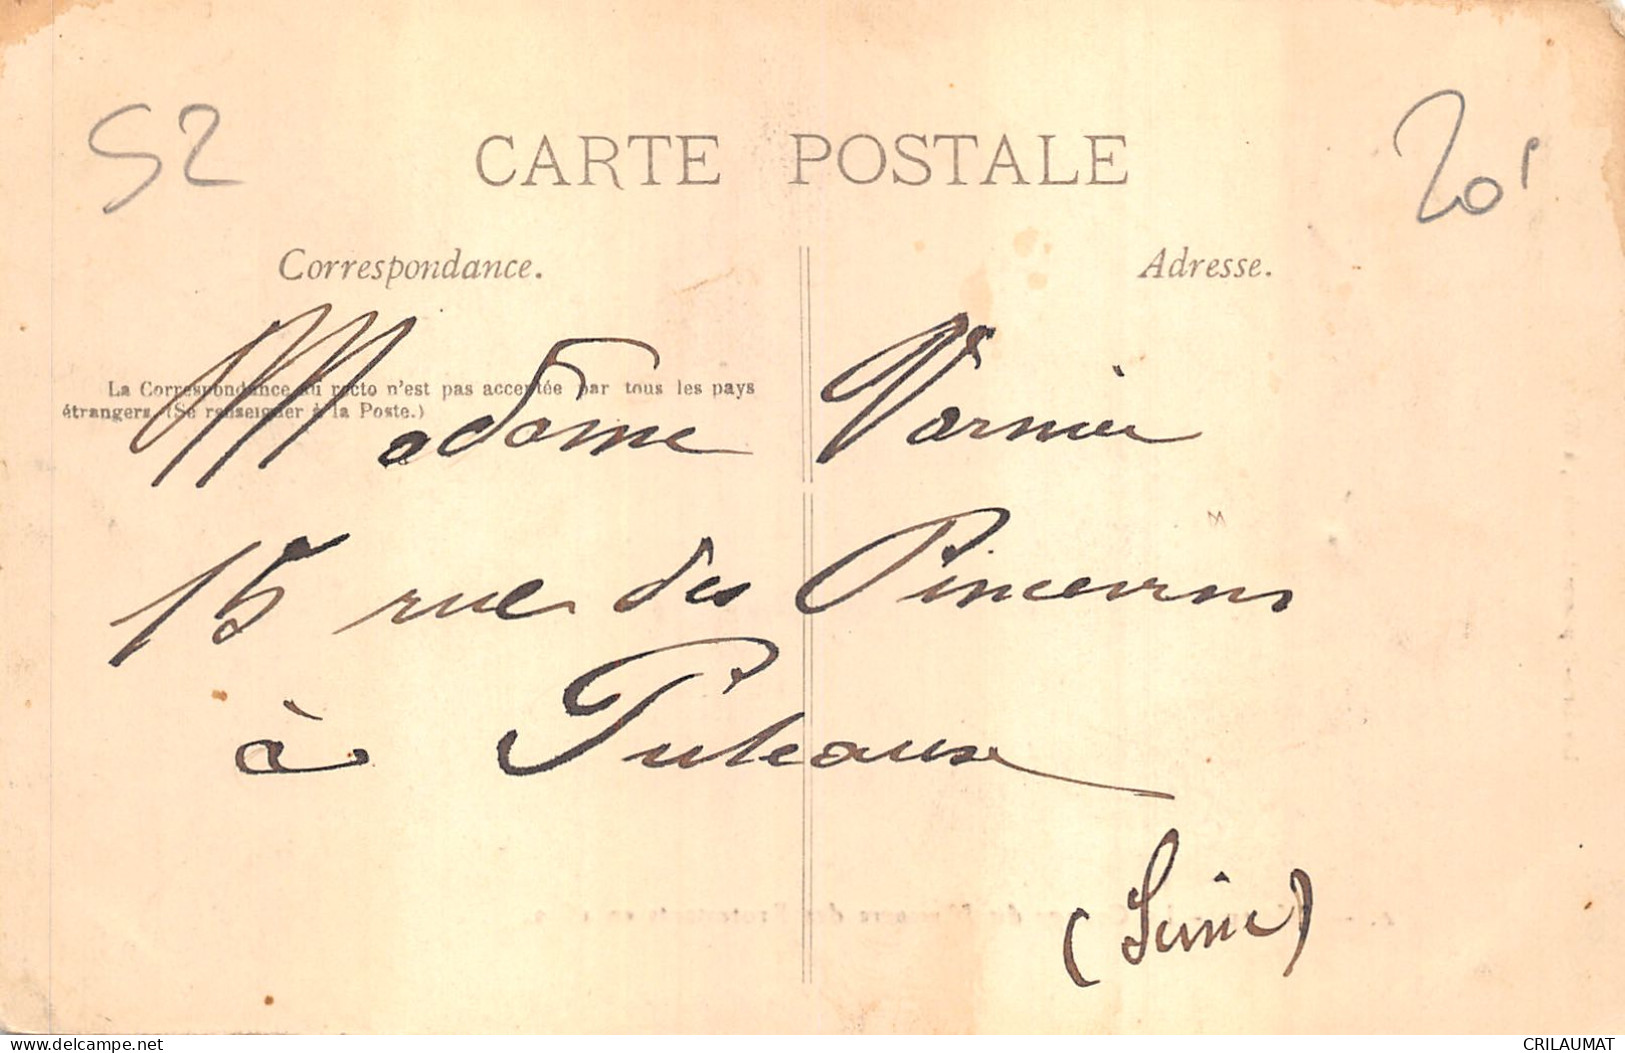 52
CARTE POSTALE
20'
Correspondance.
Adresse.
La Correspondance au recto n'est pas acceptée par tous les pays
étrangers. (Se renseigner à la Poste.)
Madame Varnier
15 rue des
à Puteaux
(Seine)
delcampe.net
CRILAUMAT